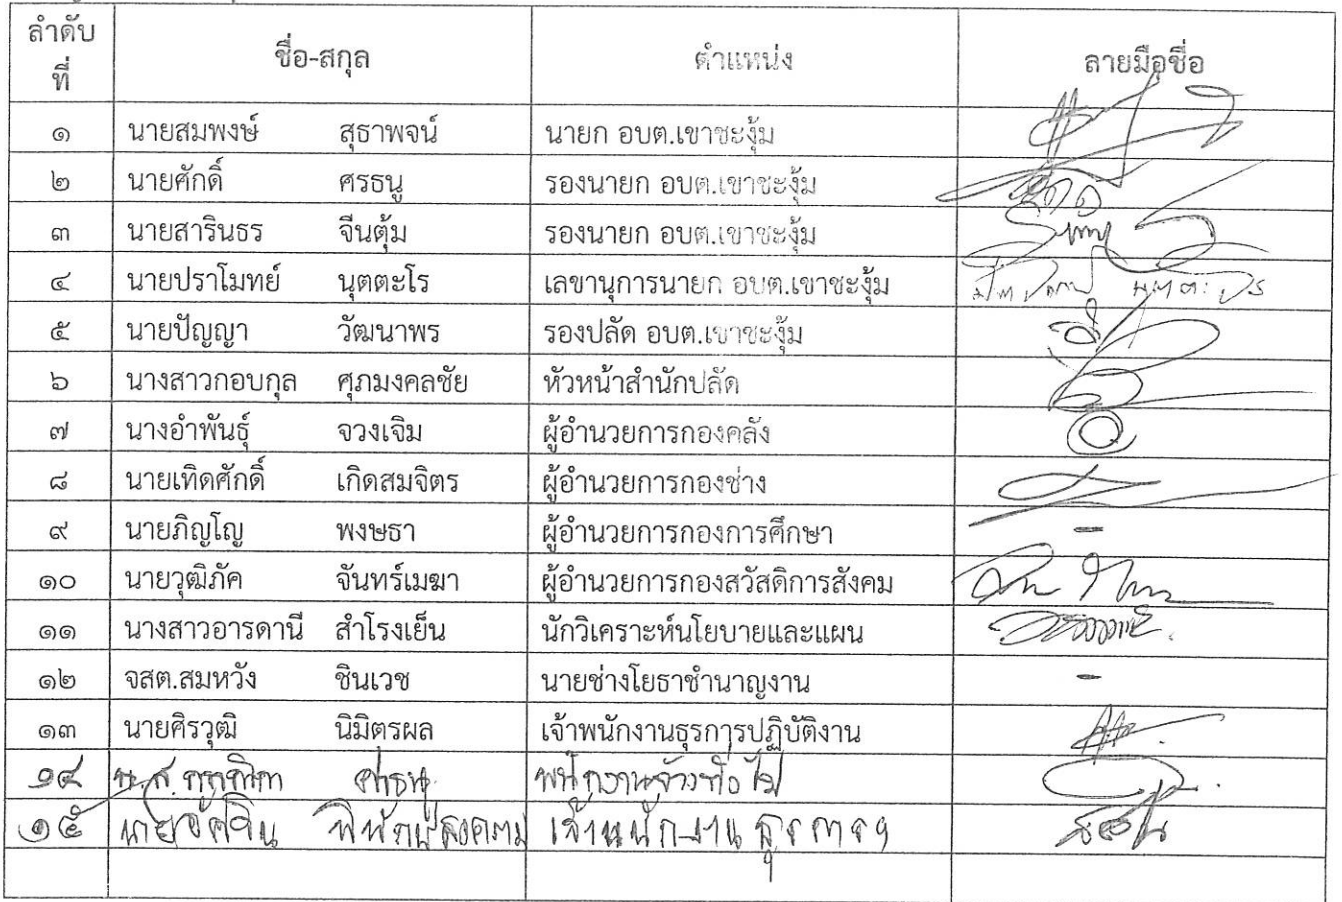 ลำดับ
ที่ ชื่อ-สกุล ตำแหน่ง ลายมือชื่อ
๑ นายสมพงษ์ สุธาพจน์ นายก อบต.เขาชะงุ้ม
๒ นายศักดิ์ ศรธนู รองนายก อบต.เขาชะงุ้ม
๓ นายสารินธร จีนตุ้ม รองนายก อบต.เขาชะงุ้ม
๔ นายปราโมทย์ นุตตะโร เลขานุการนายก อบต.เขาชะงุ้ม
๕ นายปัญญา วัฒนาพร รองปลัด อบต.เขาชะงุ้ม
๖ นางสาวกอบกุล ศุภมงคลชัย หัวหน้าสำนักปลัด
๗ นางอำพันธุ์ จวงเจิม ผู้อำนวยการกองคลัง
๘ นายเทิดศักดิ์ เกิดสมจิตร ผู้อำนวยการกองช่าง
๙ นายภิญโญ พงษธา ผู้อำนวยการกองการศึกษา -
๑๐ นายวุฒิภัค จันทร์เมฆา ผู้อำนวยการกองสวัสดิการสังคม
๑๑ นางสาวอารดานี สำโรงเย็น นักวิเคราะห์นโยบายและแผน
๑๒ จสต.สมหวัง ชินเวช นายช่างโยธาชำนาญงาน -
๑๓ นายศิรวุฒิ นิมิตรผล เจ้าพนักงานธุรการปฏิบัติงาน
๑๔ น.ส. ศรธนู พนักงานจ้างทั่วไป
๑๕ เจ้าพนักงานธุรการฯ